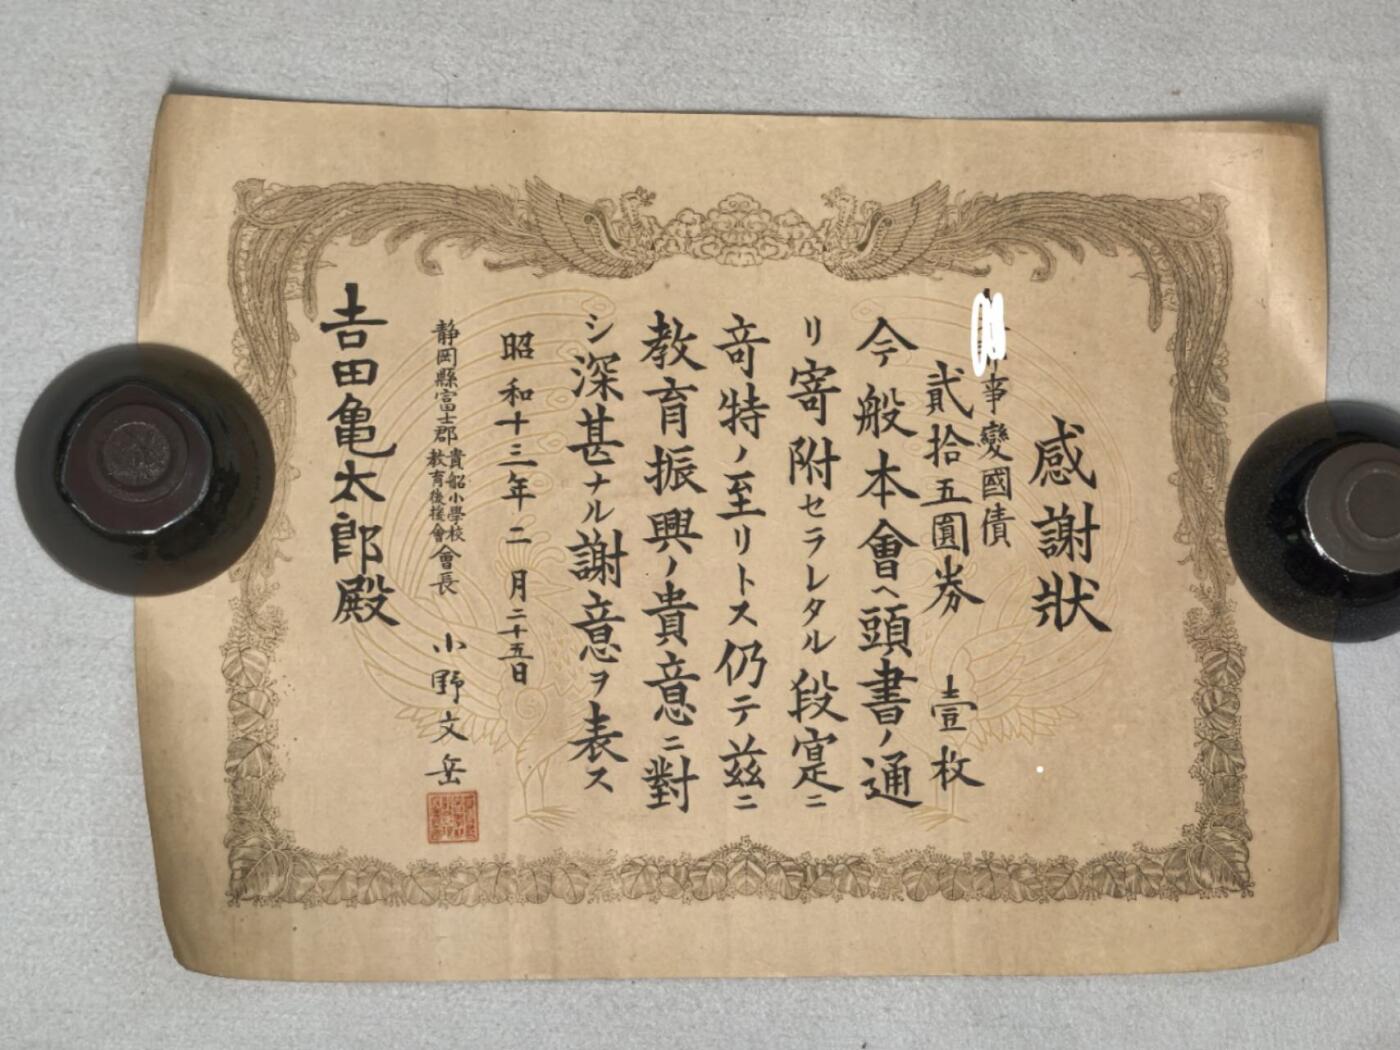 感謝狀
事變國債
貳拾五圓券 壹枚
今般本會ヘ頭書ノ通
リ寄附セラレタル段寔ニ
竒特ノ至リトス仍テ茲ニ
教育振興ノ貴意ニ對
シ深甚ナル謝意ヲ表ス
昭和十三年二月二十五日
静岡縣富士郡貴船小學校教育後援會會長 小野文岳
吉田亀太郎殿